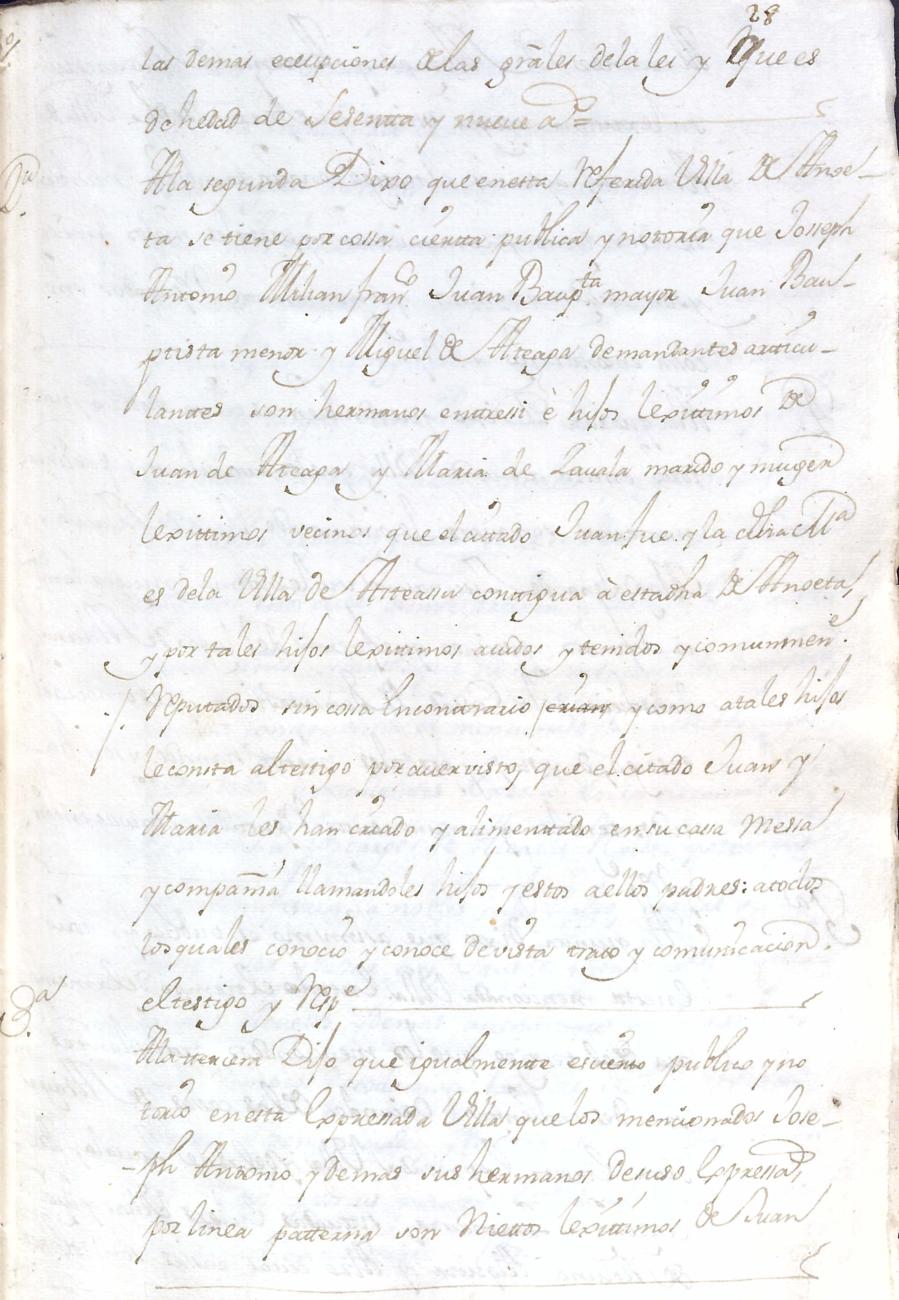 28
las demas ecepciones de las grãles dela lei y que es
de hedad de Sesenta y nueve a.s =
2.a
Ala segunda Dixo que enesta referida Villa de Anoe-
ta se tiene por cossa ciertta publica y notoria que Joseph
Antonio Milian fran.co Juan Bap.ta mayor Juan Bau-
ptista menor y Miguel de Atteaga demandantes articu-
lanttes son hermanos entressi è hijos lexittimos de
Juan de Atteaga y Maria de Zavala marido y muger
lexittimos vecinos que el cittado Juan fue y la dha M.a
es dela Villa de Atteassu conttigua à esta dha de Anoeta
y por tales hijos lexittimos avidos y tenidos y comunmen.e
Reputados sin cossa En conttrario y como a tales hijos
le consta al testigo por aver visto, que el citado Juan y
Maria les han criado y alimenttado en su cassa Messa
y compañia llamandoles hijos y estos a ellos padres: a todos
los quales conocio y conoce de vista trato y comunicacion.
el testigo y Resp.e
3.a
Ala ttercera Dijo que igualmente es cierto publico y no
torio en esta Expressada Villa que los mencionados Jose-
-ph Antonio y demas sus hermanos de suso Expressad.s
por linea patterna son Niettos lexittimos de Juan